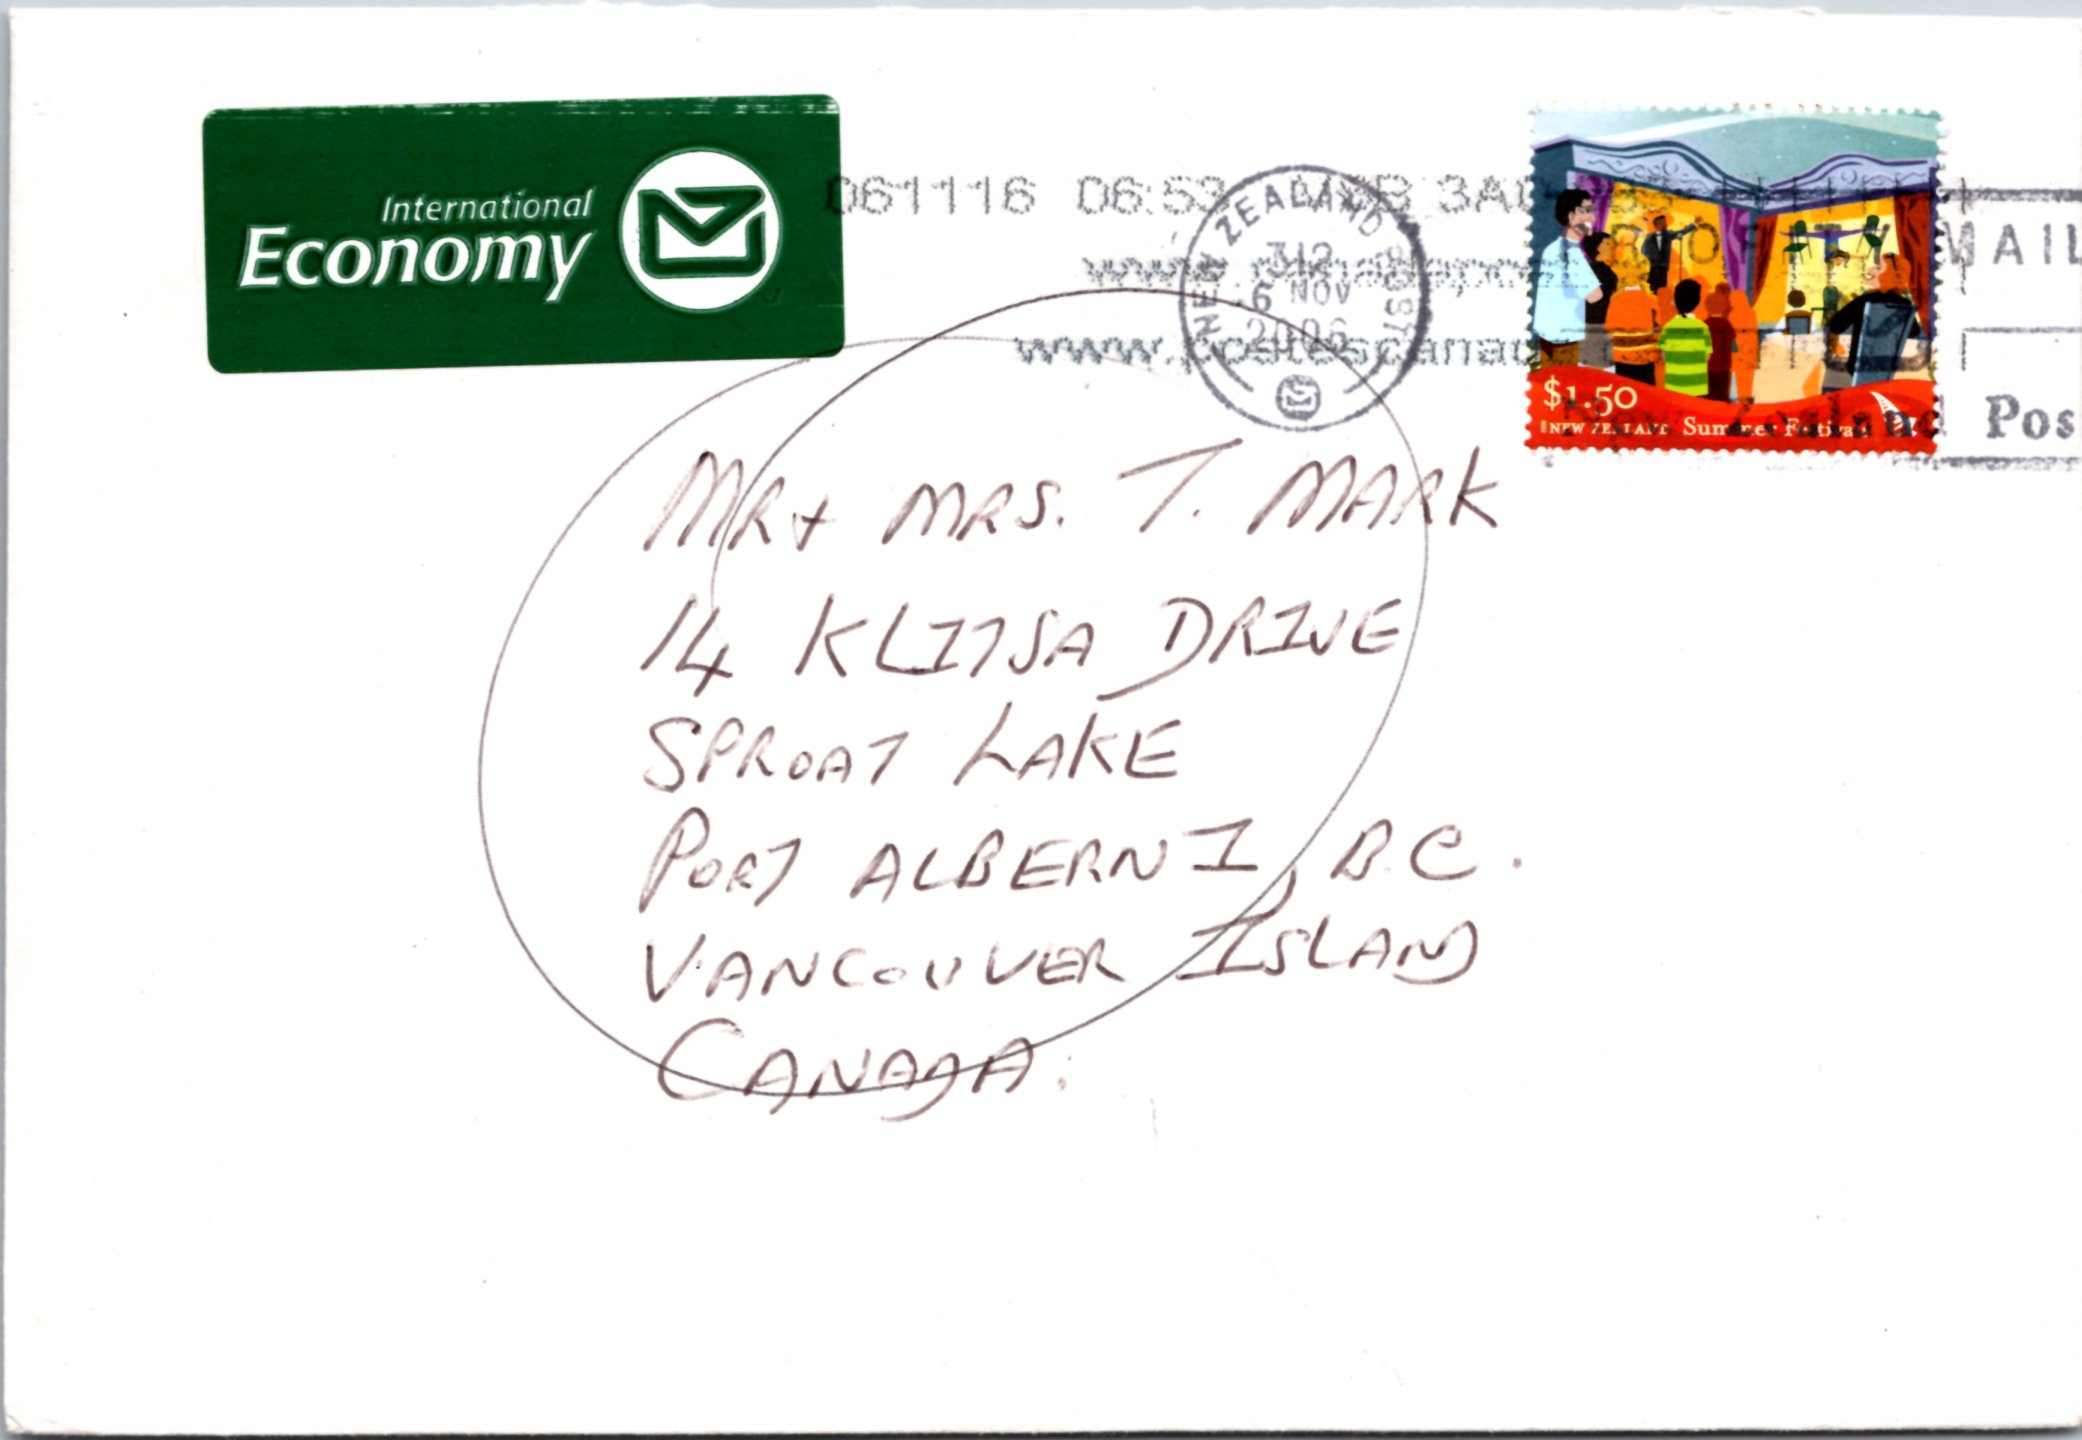 International
Economy
061116 06:53
NEW ZEALAND POST
312
6 NOV
2006
MAIL
www.postescanad
$1.50
NEW ZEALAND Summer Festivals
New Zealand Pos
MR + MRS. T. MARK
14 KLITSA DRIVE
SPROAT LAKE
PORT ALBERNI, B.C.
VANCOUVER ISLAND
CANADA.